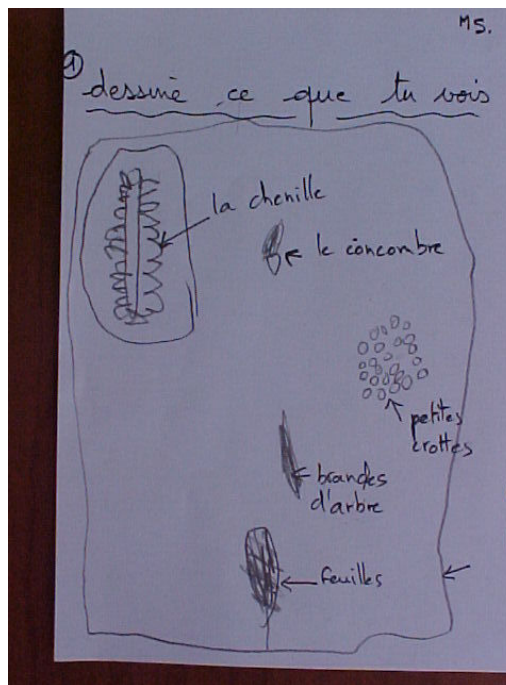 MS.
1
dessine ce que tu vois
la chenille
le concombre
petites
crottes
brandes
d'arbre
feuilles